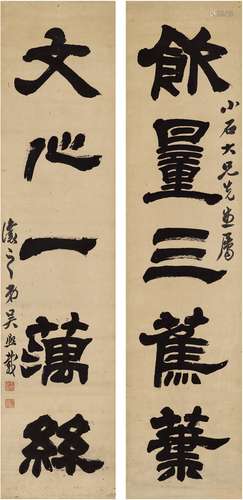 飲量三蕉葉
小石大兄先生屬
文心一繭絲
讓之弟吳熙載